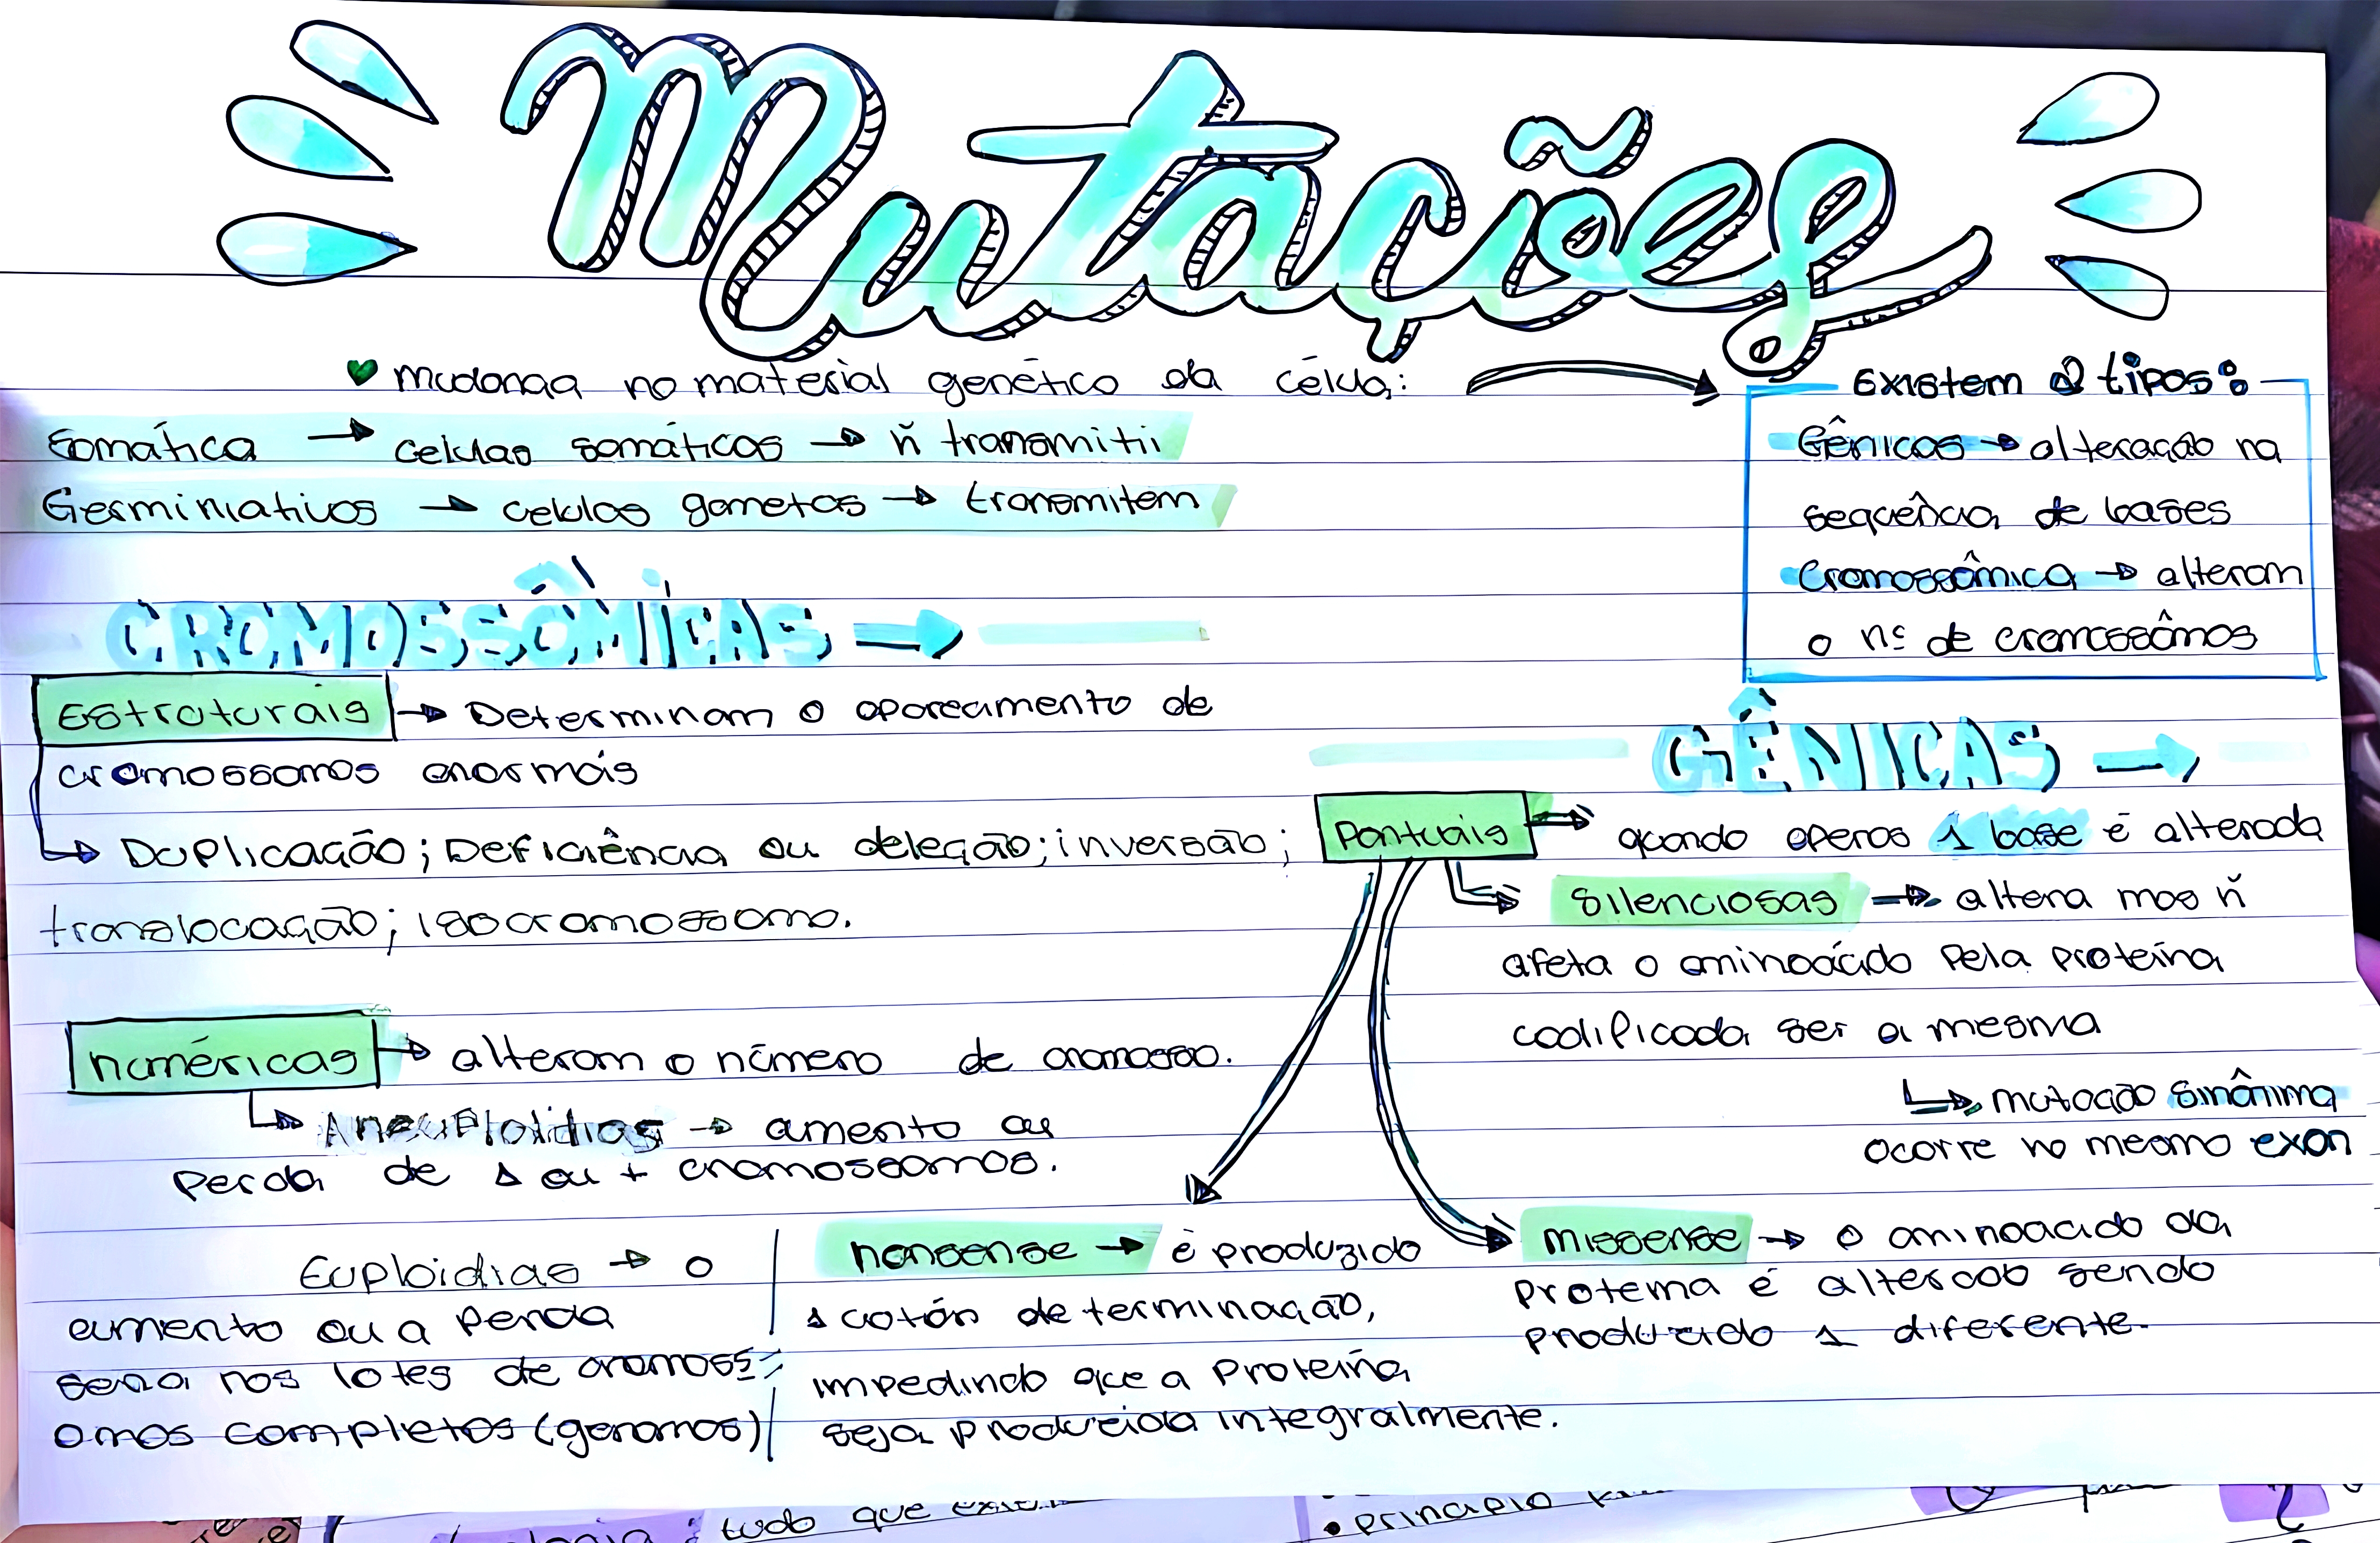 Mutações
mudança no material genético da célula:
Existem 2 tipos:
Somática → celulas somáticas → ñ transmiti
Germiniativos → celulas gametas → transmitem
Gênicas → alteração na
sequência de bases
Cromossômica → alteram
o nº de cromossômos
CROMOSSÔMICAS →
Estruturais → Determinam o apareamento de
cromossomos anormais
→ Duplicação; Deficiência ou deleção; inversão;
translocação; isocromossomo.
numéricas → alteram o número de cromosso.
→ Aneuploidias → amento ou
perda de 1 ou + cromossomos.
Euploidias → o
aumento ou a perda
sera nos lotes de cromoss=
omos completos (genomos)
GÊNICAS →
Pontuais → quando apenas 1 base é alterada
Silenciosas → altera mas ñ
afeta o aminoácido pela proteína
codificada ser a mesma
→ mutação sinônima
ocorre no mesmo exon
nonsense → é produzido
1 cotón de terminação,
impedindo que a proteína
seja produzida integralmente.
missense → o aminoacido da
proteína é alterado sendo
produzido 1 diferente.
tudo que
• principio